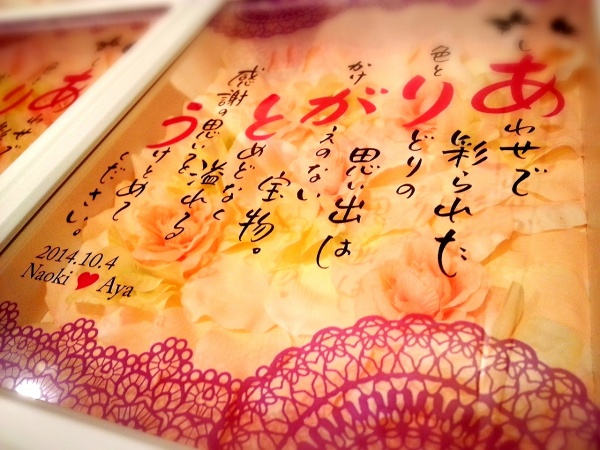 しあわせで
彩られた
色とりどりの
思い出は
かけがえのない
宝物。
とめどなく
溢れる
感謝の思いを
うけとめて
ください。
2014.10.4
Naoki ♥ Aya